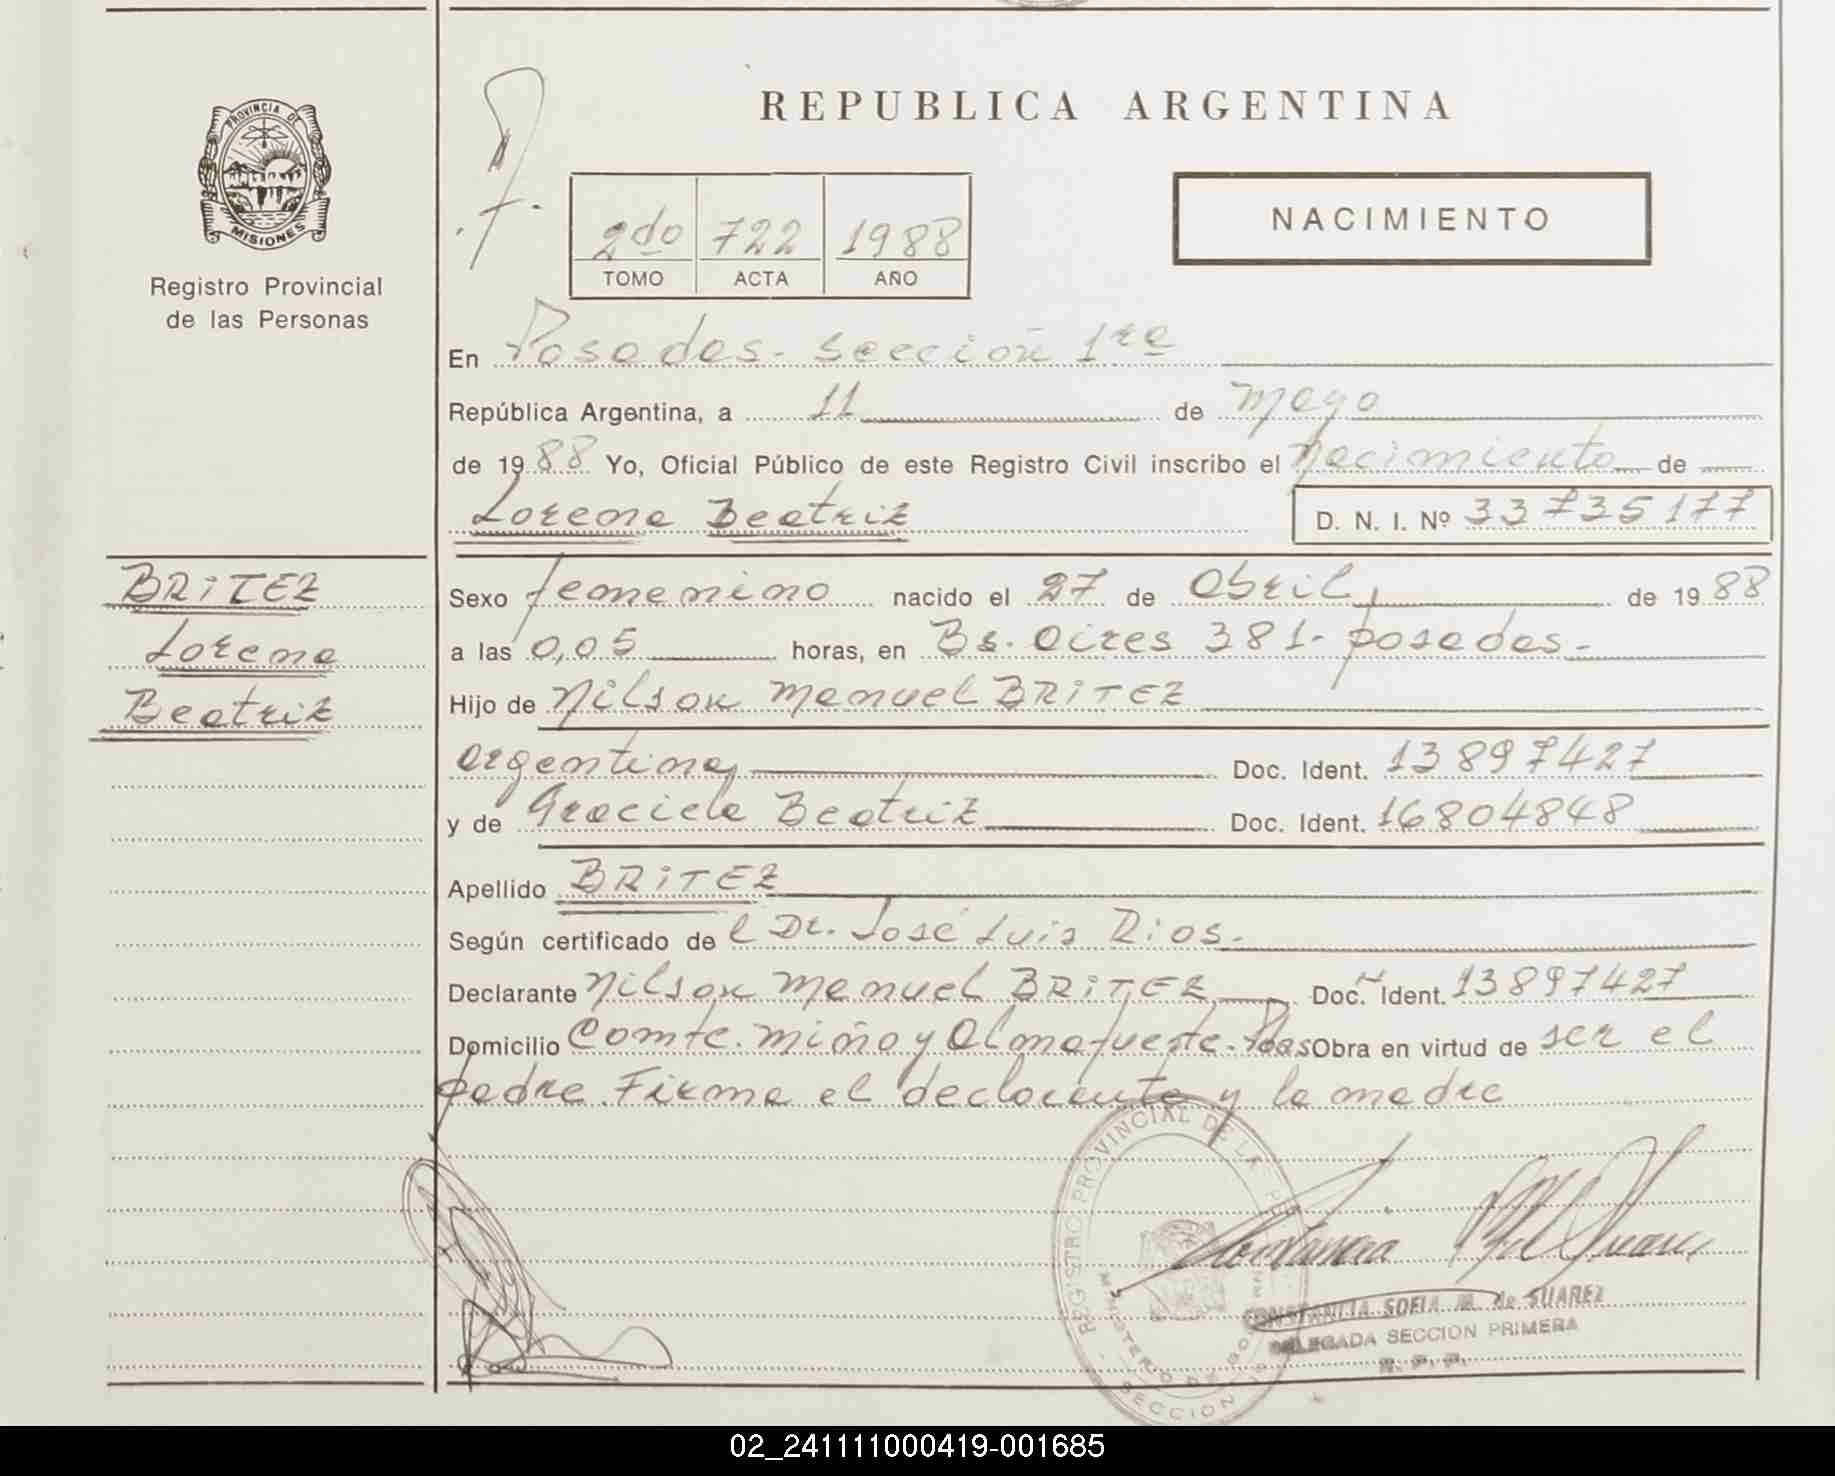 PROVINCIA DE
MISIONES
Registro Provincial
de las Personas
REPUBLICA ARGENTINA
NACIMIENTO
2do 722 1988
TOMO ACTA AÑO
En Posadas - sección 1ra
República Argentina, a 11 de mayo
de 1988 Yo, Oficial Público de este Registro Civil inscribo el Nacimiento de
Lorena Beatriz D. N. I. Nº 33735177
BRITEZ
Lorena
Beatriz
Sexo femenino nacido el 27 de Abril de 1988
a las 0,05 horas, en Bs. Aires 381 - posadas -
Hijo de Nilson Manuel BRITEZ
argentina Doc. Ident. 13897427
y de Graciela Beatriz Doc. Ident. 16804848
Apellido BRITEZ
Según certificado de l Dr. José Luis Rios -
Declarante Nilson Manuel BRITEZ Doc. Ident. 13897427
Domicilio Comte. Miño y Almafuerte - Pdas Obra en virtud de ser el
padre Firma el declarante y la madre
REGISTRO PROVINCIAL DE LA
MINISTERIO DE GO
SECCION
CONSTANCIA SOFIA M. de SUAREZ
DELEGADA SECCION PRIMERA
R. P. P.
02_241111000419-001685